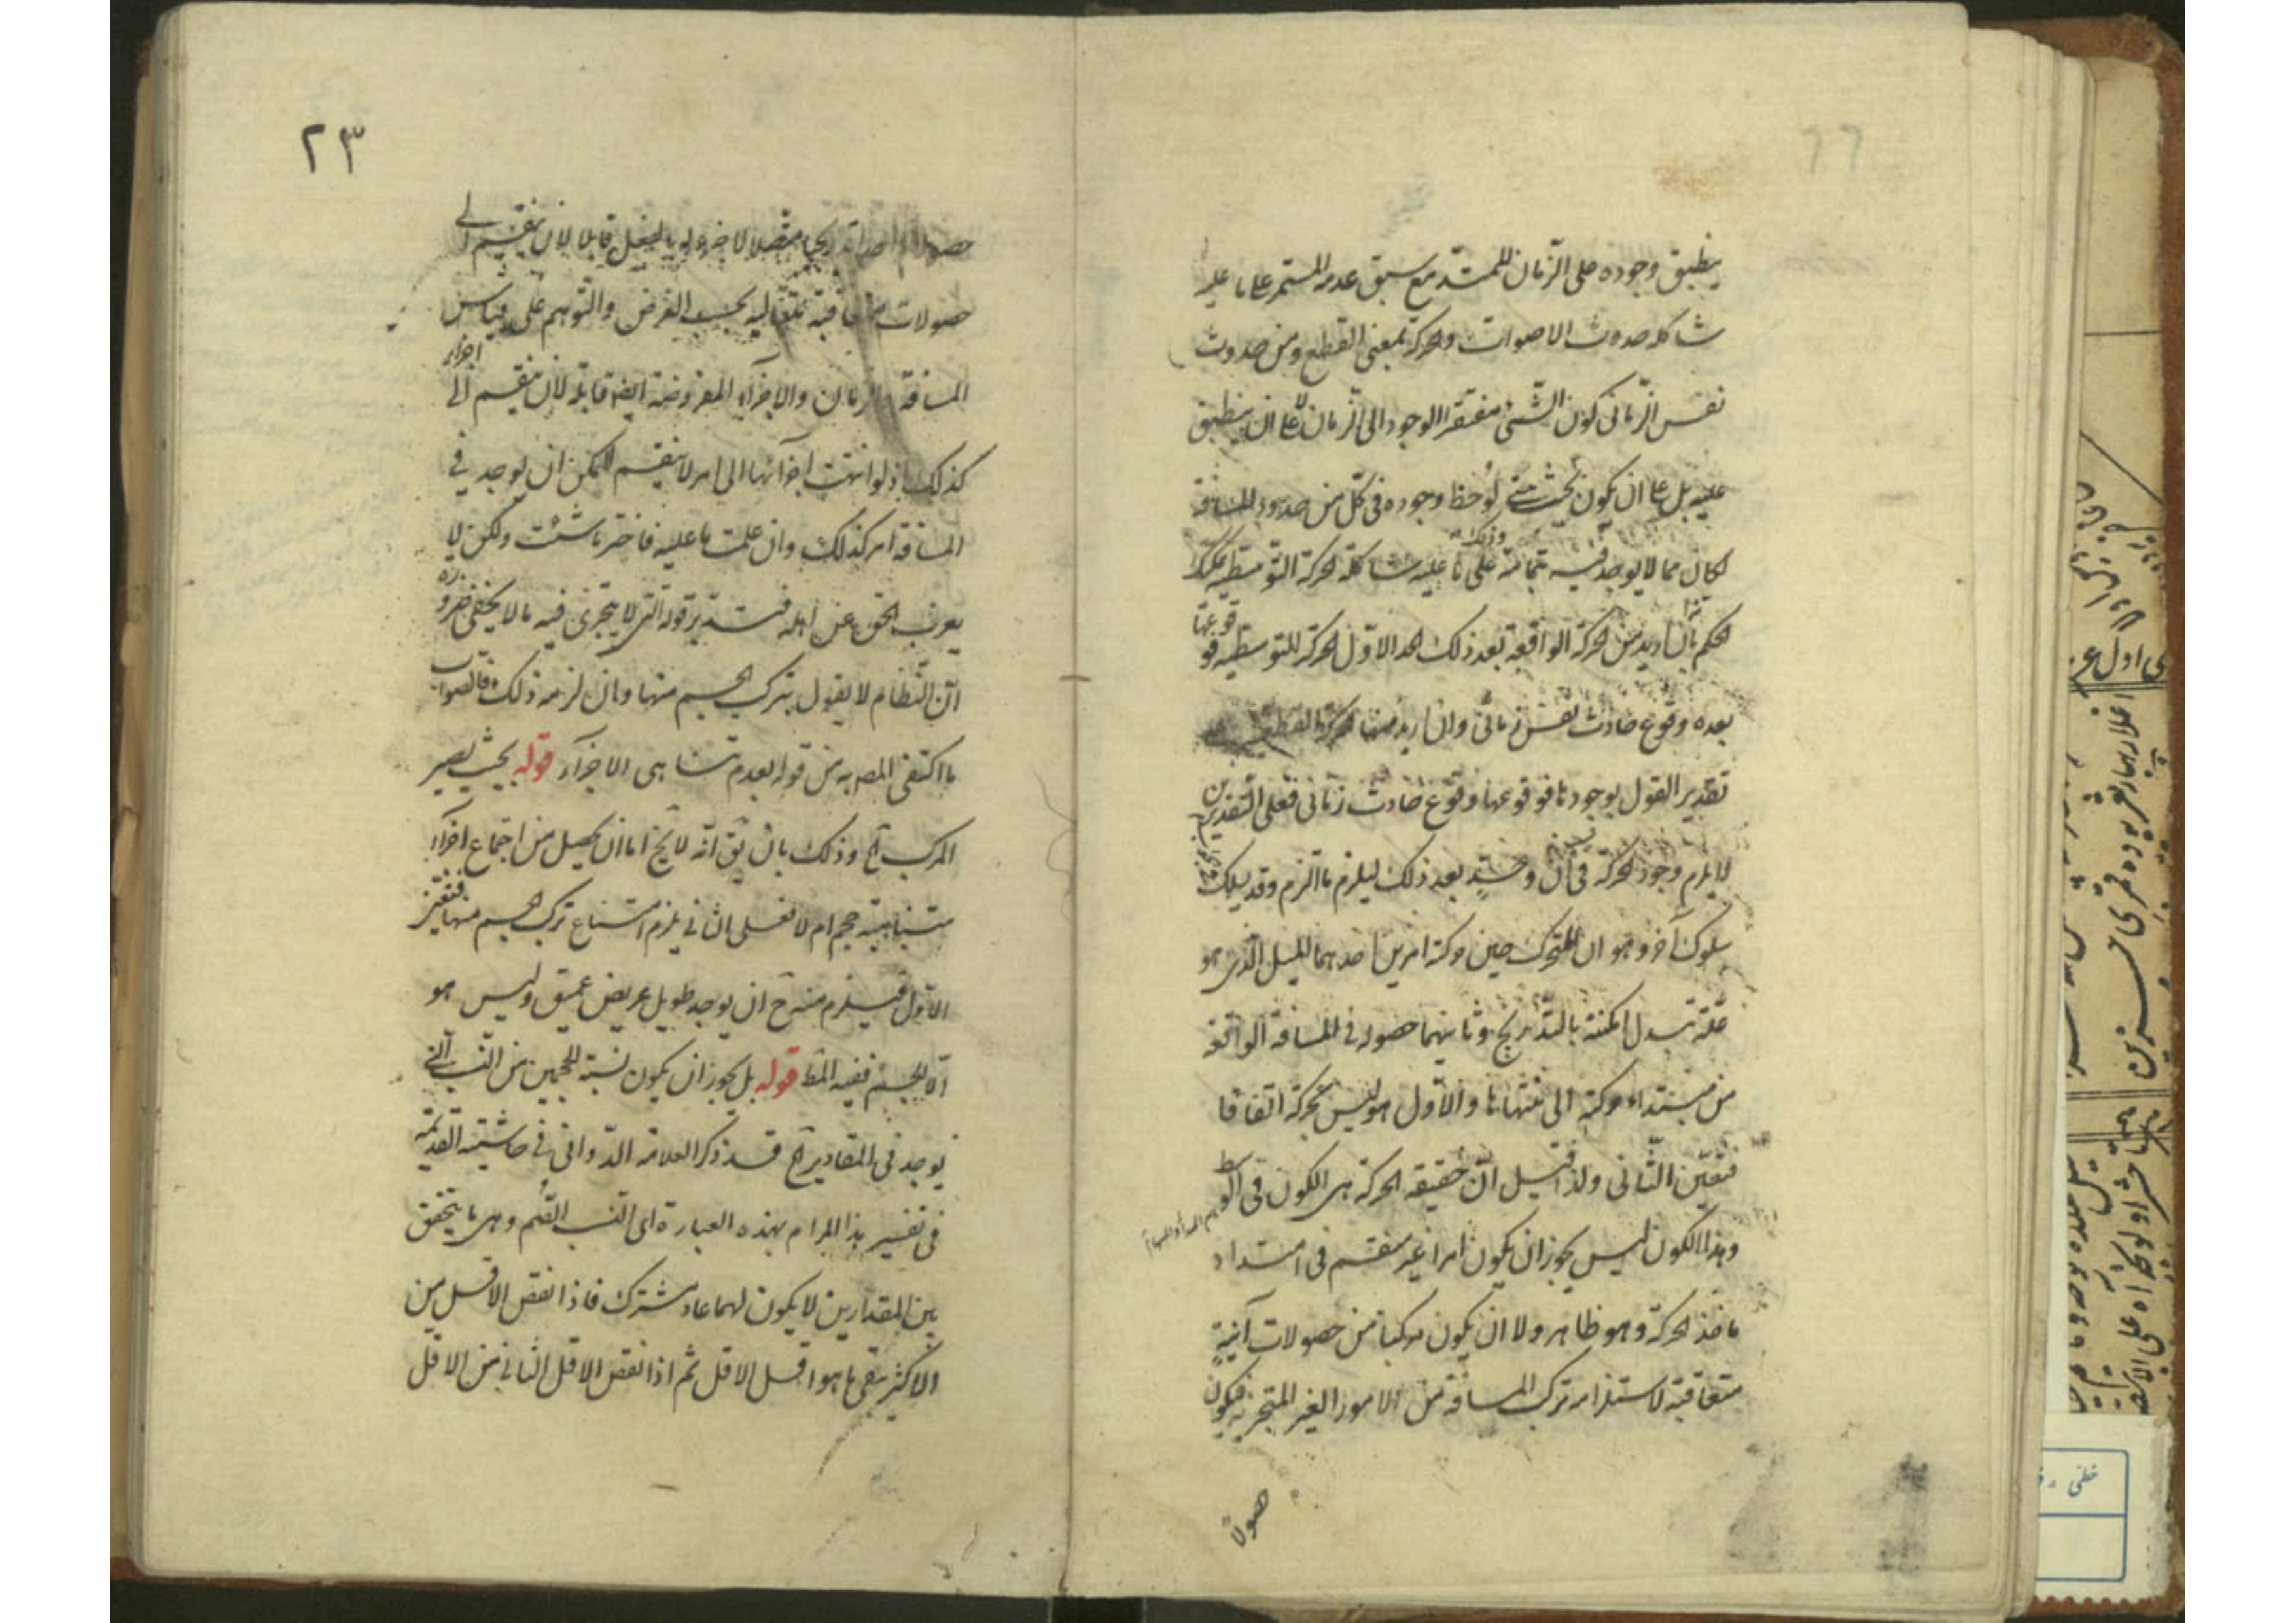 ينطبق وجوده على الزمان الممتد مع سبق عدمه المستمر على ما عليه
شاكلة حدوث الاصوات والحركة بمعنى القطع ومن حدوث
نفس الزمانى كون الشئ مفتقر الوجود الى الزمان لا على ان ينطبق
عليه بل على ان يكون بحيث متى لوحظ وجوده فى كل من حدود المسافة
لكان مما لا يوجد فيه بتمامه على ما عليه شاكلة الحركة التوسطية وذلك
الحكم بان اريد من الحركة الواقعة بعد ذلك الحد الاول الحركة التوسطية فوقوعها
بعده وقوع حادث نفس زمانى وان اريد منها الحركة القطعية
تقدير القول بوجودها فوقوعها وقوع حادث زمانى فعلى التقديرين
لا يلزم وجود الحركة فى آن بعد ذلك ليلزم ما الزم وقد يسلك
سلوك آخر وهو ان للمتحرك حين حركته امرين احدهما الميل الذى هو
علة تبدل امكنته بالتدريج وثانيهما حصوله فى المسافة الواقعة
من مبتداء حركته الى منتهاها والاول هو ليس بحركة اتفاقا
فتعين الثانى ولذا قيل ان حقيقة الحركة هى الكون فى الوسط
وهذا الكون ليس يجوز ان يكون امرا غير منقسم فى امتداد
ماخذ الحركة وهو ظاهر ولا ان يكون مركبا من حصولات آنية
متعاقبة لاستلزامه تركب المسافة من الامور الغير المتجزية فيكون
حصولاً
٢٣
حصولا واحدا تدريجيا متصلا لا جزء له بالفعل قابلا لان ينقسم الى
حصولات متعاقبة متتالية بحسب الفرض والتوهم على قياس
المسافة والزمان والاجزاء المفروضة ايضا قابلة لان ينقسم الى اجزاء
كذلك اذ لو انتهت اجزائها الى امر لا ينقسم لامكن ان يوجد فى
المسافة امر كذلك وان علمت ما عليه فاختر ما شئت ولكن لا
يعزب الحق عن اهله فتدبر قوله التى لا يتجزى فيه ما لا يخفى ضرورة
ان النظام لا يقول بتركب الجسم منها وان لزمه ذلك فالصواب
ما اكتفى المصـ به من قوله بعدم تناهى الاجزاء قوله بحيث يصير
المركب آه وذلك بان يق انه لا يخ اما ان يحصل من اجتماع اجزاء
متناهية حجم ام لا فعلى الثانى يلزم امتناع تركب الجسم منها فتعين
الاول فيلزم منه ح ان يوجد طويل عريض عميق وليس هو
الا الجسم ففيه المط قوله بل يجوز ان يكون نسبة الحجمين من النسب التى
يوجد فى المقادير آه قد ذكر العلامة الدوانى فى حاشيته القديمة
فى تفسير هذا المرام بهذه العبارة اى النسب الصم وهى ما يتحقق
بين المقدارين لا يكون لهما عاد مشترك فاذا نقص الاقل من
الاكثر بقى ما هو اقل الاقل ثم اذا نقص الاقل الثانى من الاقل